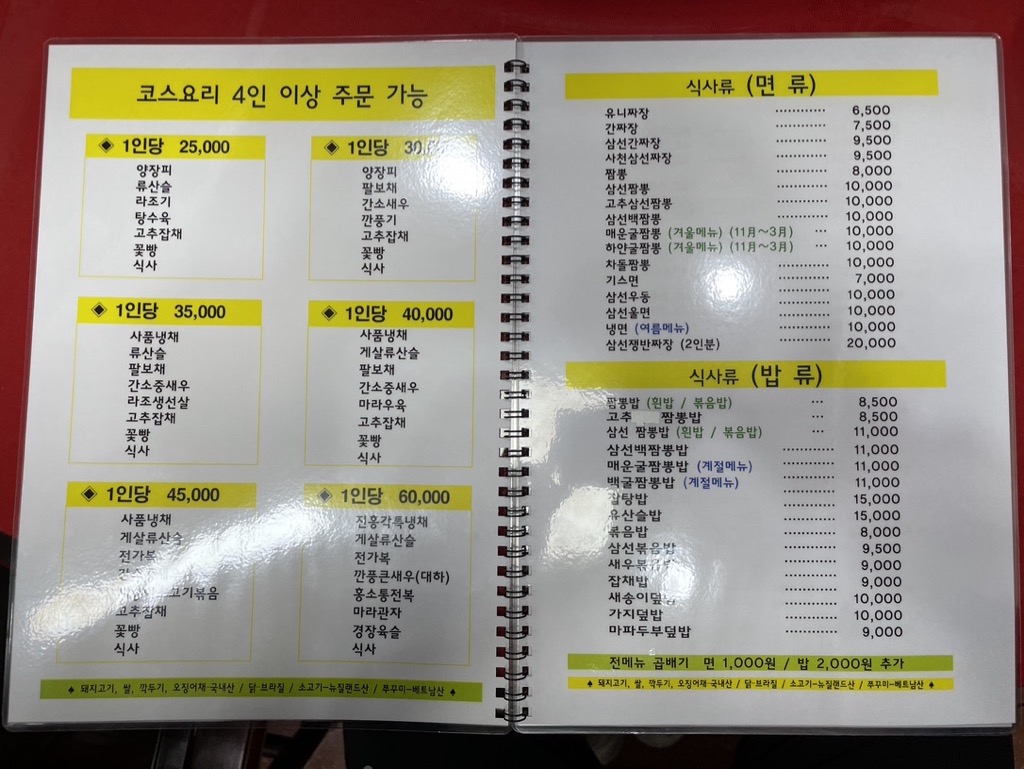 코스요리 4인 이상 주문 가능
◈ 1인당 25,000
양장피
류산슬
라조기
탕수육
고추잡채
꽃빵
식사
◈ 1인당
양장피
팔보채
간소새우
깐풍기
고추잡채
꽃빵
식사
◈ 1인당 35,000
사품냉채
류산슬
팔보채
간소중새우
라조생선살
고추잡채
꽃빵
식사
◈ 1인당 40,000
사품냉채
게살류산슬
팔보채
간소중새우
마라우육
고추잡채
꽃빵
식사
◈ 1인당 45,000
사품냉채
게살류산슬
전가복
고추잡채
꽃빵
식사
◈ 1인당 60,000
진흥각특냉채
게살류산슬
전가복
깐풍큰새우(대하)
홍소통전복
마라관자
경장육슬
식사
♠ 돼지고기, 쌀, 깍두기, 오징어채-국내산 / 닭-브라질 / 소고기-뉴질랜드산 / 쭈꾸미-베트남산 ♠
식사류 (면 류)
유니짜장 ············ 6,500
간짜장 ············ 7,500
삼선간짜장 ············ 9,500
사천삼선짜장 ············ 9,500
짬뽕 ············ 8,000
삼선짬뽕 ············ 10,000
고추삼선짬뽕 ············ 10,000
삼선백짬뽕 ············ 10,000
매운굴짬뽕 (겨울메뉴) (11月～3月) ··· 10,000
하얀굴짬뽕 (겨울메뉴) (11月～3月) ··· 10,000
차돌짬뽕 ············ 10,000
기스면 ············ 7,000
삼선우동 ············ 10,000
삼선울면 ············ 10,000
냉면 (여름메뉴) ············ 10,000
삼선쟁반짜장 (2인분) ············ 20,000
식사류 (밥 류)
짬뽕밥 (흰밥 / 볶음밥) ··· 8,500
고추 짬뽕밥 ··· 8,500
삼선 짬뽕밥 (흰밥 / 볶음밥) ··· 11,000
삼선백짬뽕밥 ············ 11,000
매운굴짬뽕밥 (계절메뉴) ············ 11,000
백굴짬뽕밥 (계절메뉴) ············ 11,000
잡탕밥 ············ 15,000
유산슬밥 ············ 15,000
볶음밥 ············ 8,000
삼선볶음밥 ············ 9,500
새우볶음밥 ············ 9,000
잡채밥 ············ 9,000
새송이덮밥 ············ 10,000
가지덮밥 ············ 10,000
마파두부덮밥 ············ 9,000
전메뉴 곱배기 면 1,000원 / 밥 2,000원 추가
♠ 돼지고기, 쌀, 깍두기, 오징어채-국내산 / 닭-브라질 / 소고기-뉴질랜드산 / 쭈꾸미-베트남산 ♠